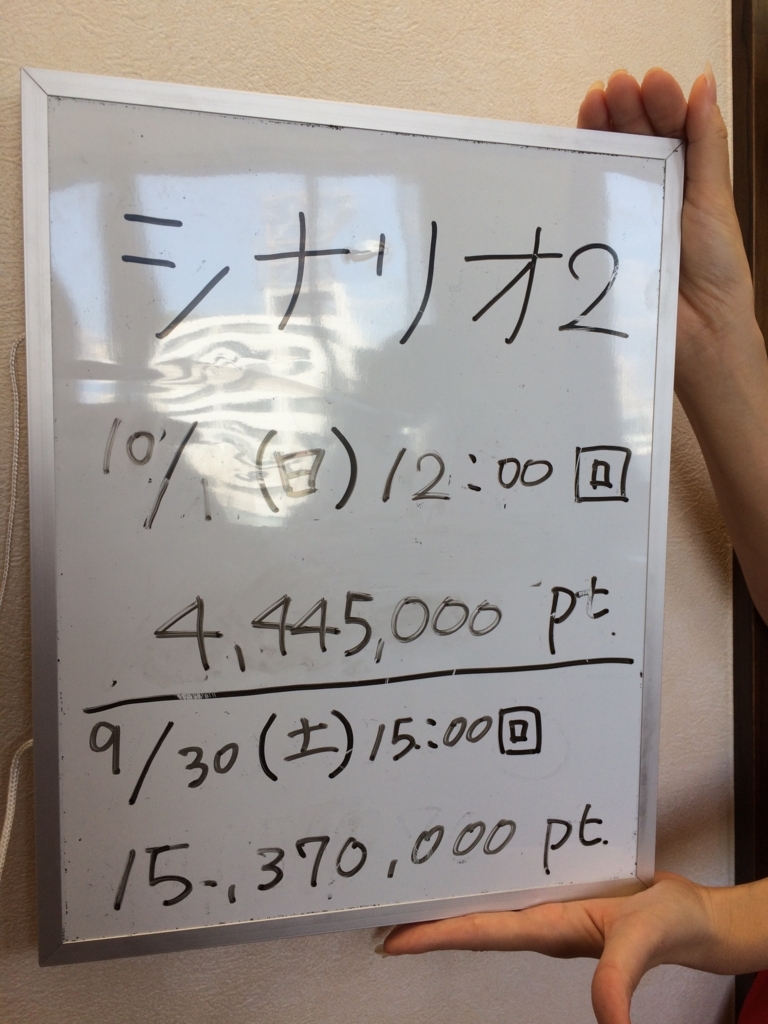 シナリオ2
10/1(日)12:00回
4,445,000 pt.
9/30(土)15:00回
15,370,000 pt.